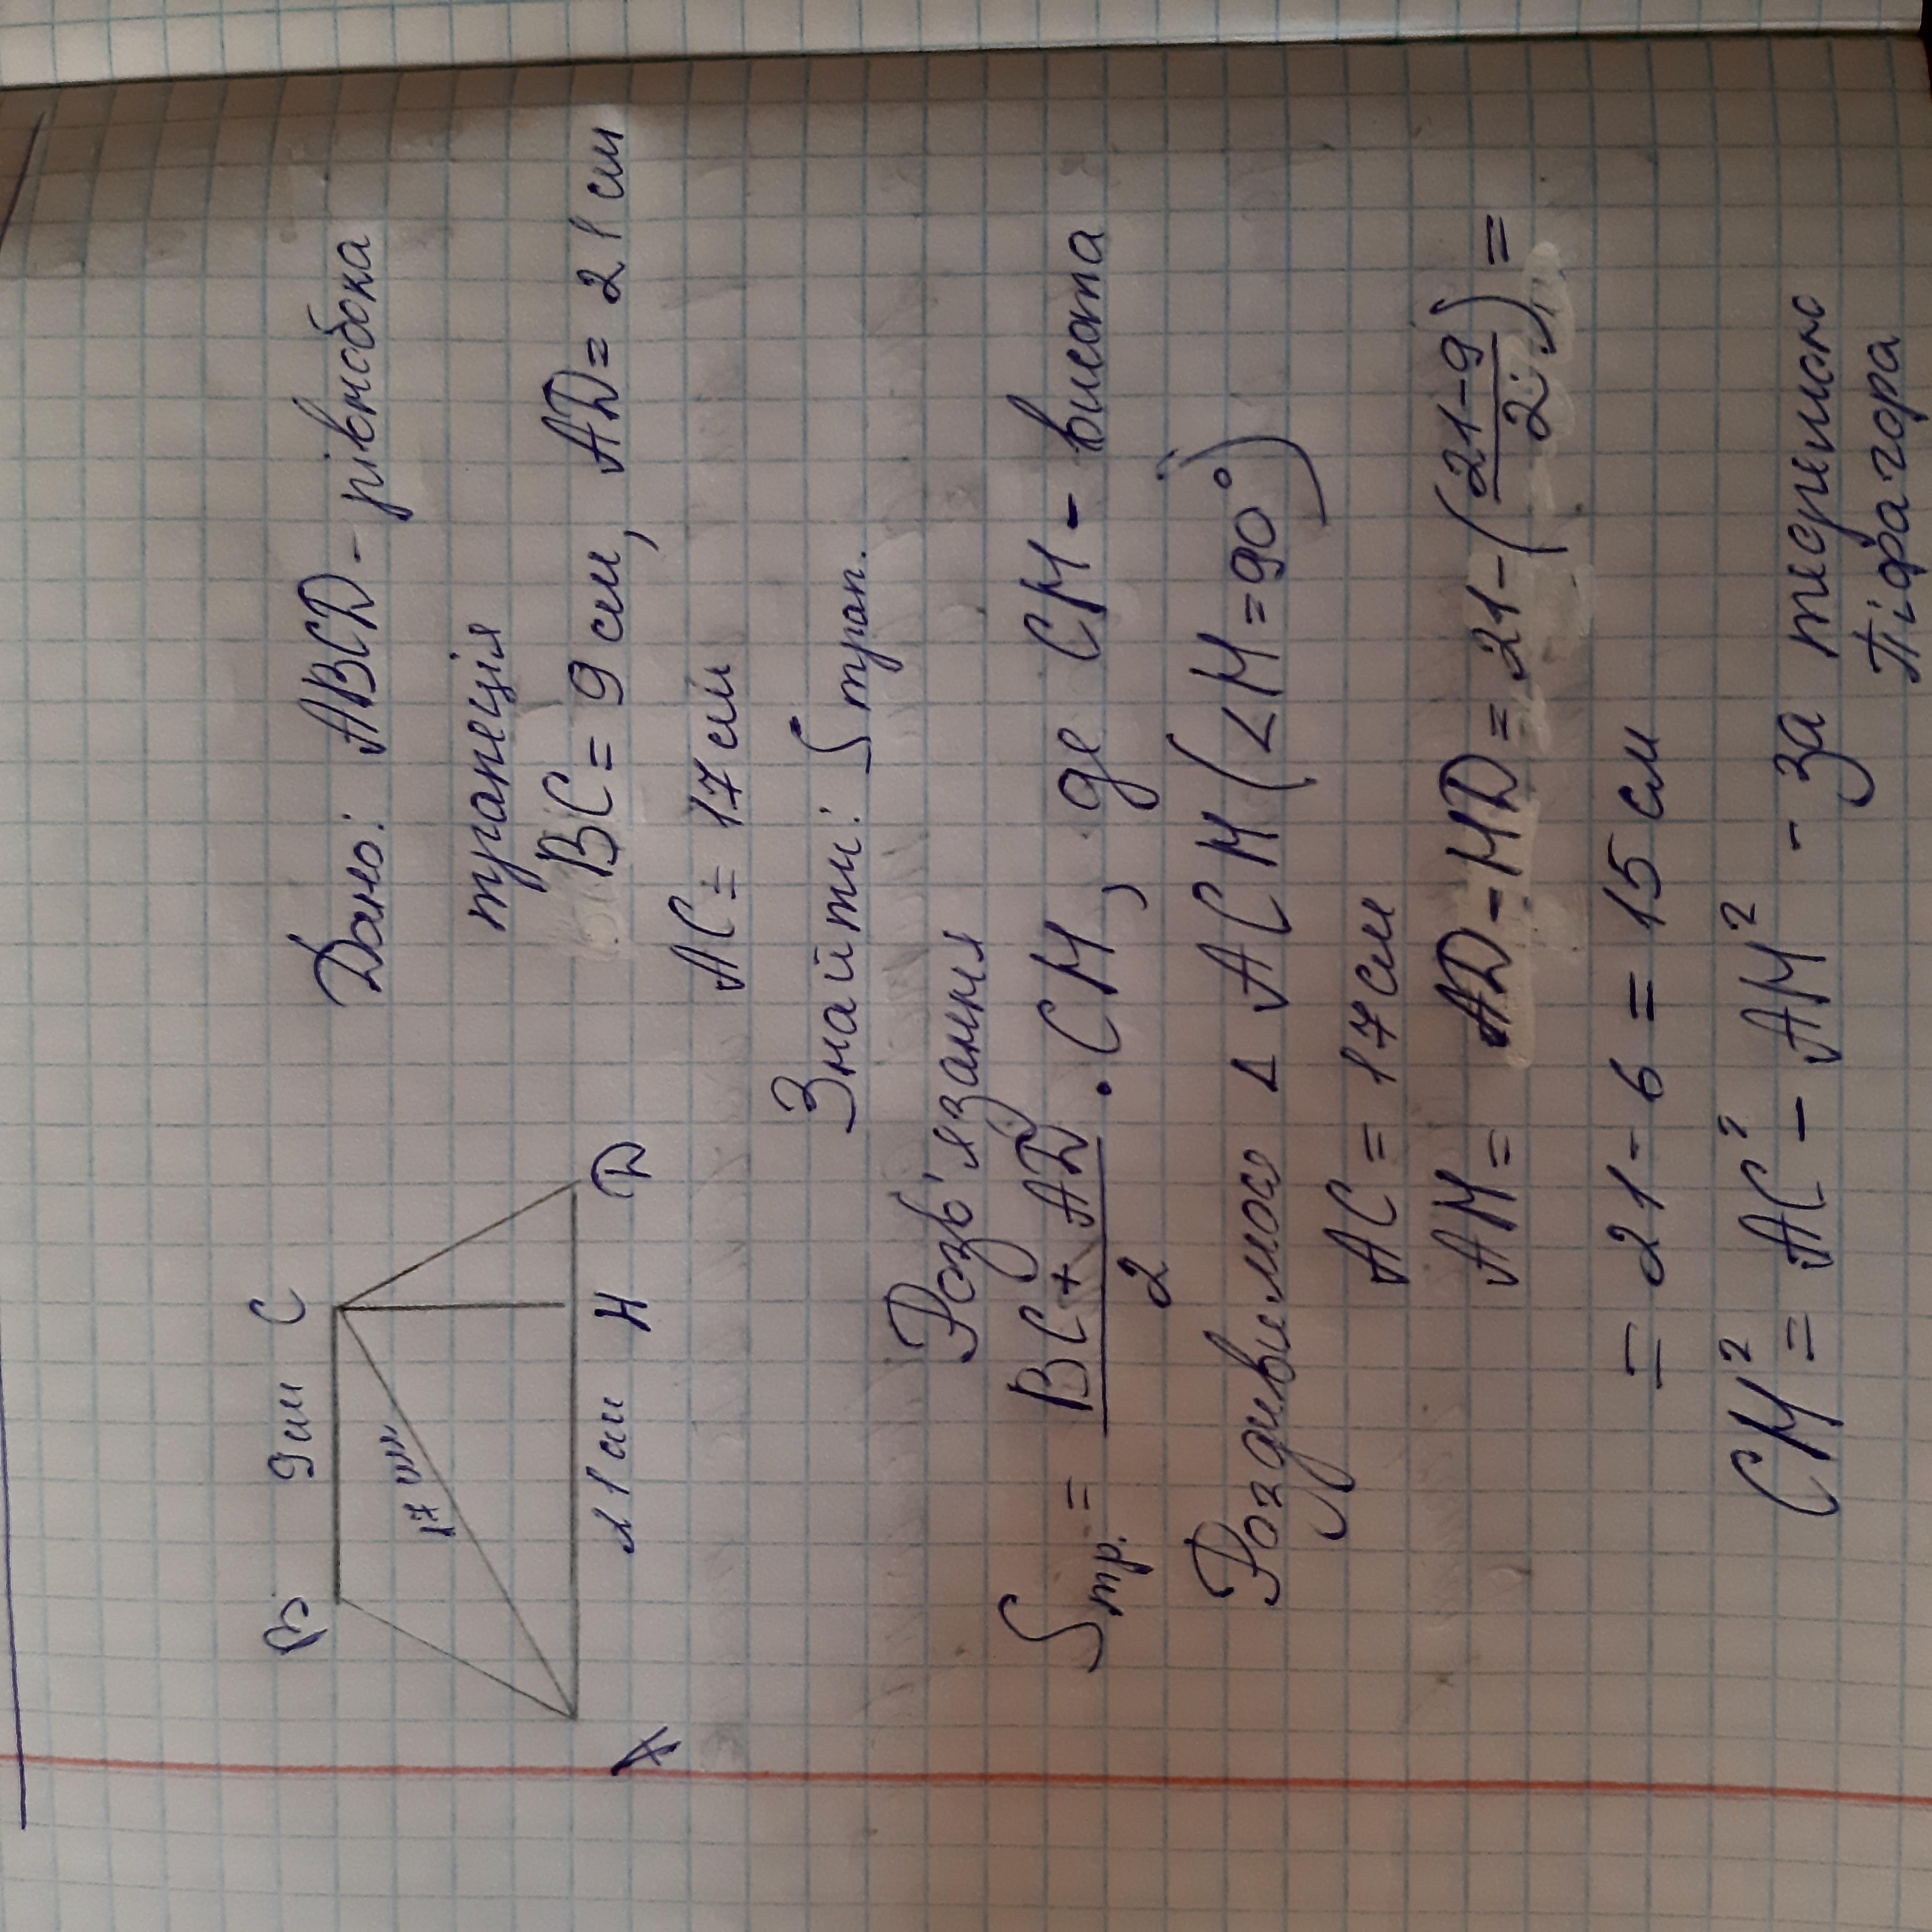 В 9см С
17 см
А 21 см Н D
Дано: ABCD - рівнобока
трапеція
BC = 9 см, AD = 21 см
AC = 17 см
Знайти: Sтрап.
Розв'язання
Sтр. = BC + AD / 2 · CM, де CM - висота
Роздивимось Δ ACM (∠M = 90°)
AC = 17 см
AM = AD - MD = 21 - (21-9 / 2) =
= 21 - 6 = 15 см
CM² = AC² - AM² - за теоремою
Піфагора